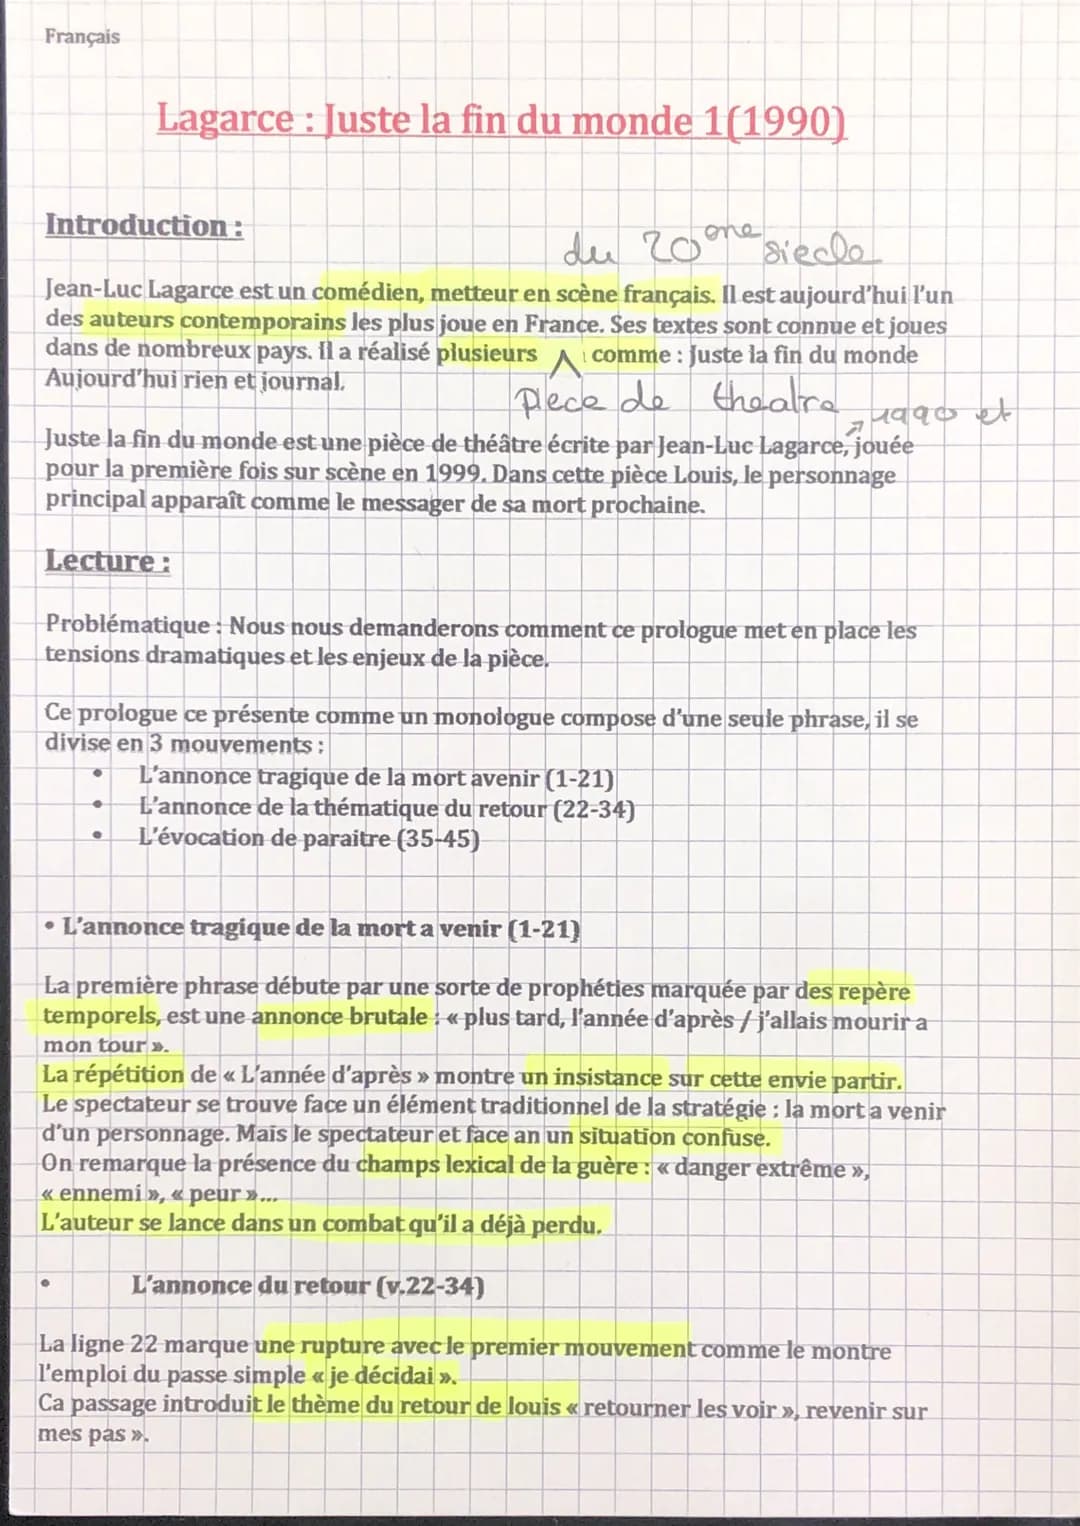 Français
Lagarce : Juste la fin du monde 1(1990)
Introduction :
du 20 ome siecle
Jean-Luc Lagarce est un comédien, metteur en scène français. Il est aujourd'hui l'un
des auteurs contemporains les plus joue en France. Ses textes sont connue et joues
dans de nombreux pays. Il a réalisé plusieurs comme : Juste la fin du monde
Aujourd'hui rien et journal.
piece de theatre
1990 et
Juste la fin du monde est une pièce de théâtre écrite par Jean-Luc Lagarce, jouée
pour la première fois sur scène en 1999. Dans cette pièce Louis, le personnage
principal apparaît comme le messager de sa mort prochaine.
Lecture :
Problématique : Nous nous demanderons comment ce prologue met en place les
tensions dramatiques et les enjeux de la pièce.
Ce prologue ce présente comme un monologue compose d'une seule phrase, il se
divise en 3 mouvements :
• L'annonce tragique de la mort avenir (1-21)
• L'annonce de la thématique du retour (22-34)
• L'évocation de paraitre (35-45)
• L'annonce tragique de la mort a venir (1-21)
La première phrase débute par une sorte de prophéties marquée par des repère
temporels, est une annonce brutale : « plus tard, l'année d'après / j'allais mourir a
mon tour ».
La répétition de « L'année d'après » montre un insistance sur cette envie partir.
Le spectateur se trouve face un élément traditionnel de la stratégie : la mort a venir
d'un personnage. Mais le spectateur et face an un situation confuse.
On remarque la présence du champs lexical de la guère : « danger extrême »,
« ennemi », « peur »...
L'auteur se lance dans un combat qu'il a déjà perdu.
• L'annonce du retour (v.22-34)
La ligne 22 marque une rupture avec le premier mouvement comme le montre
l'emploi du passe simple « je décidai ».
Ca passage introduit le thème du retour de louis « retourner les voir », revenir sur
mes pas ».